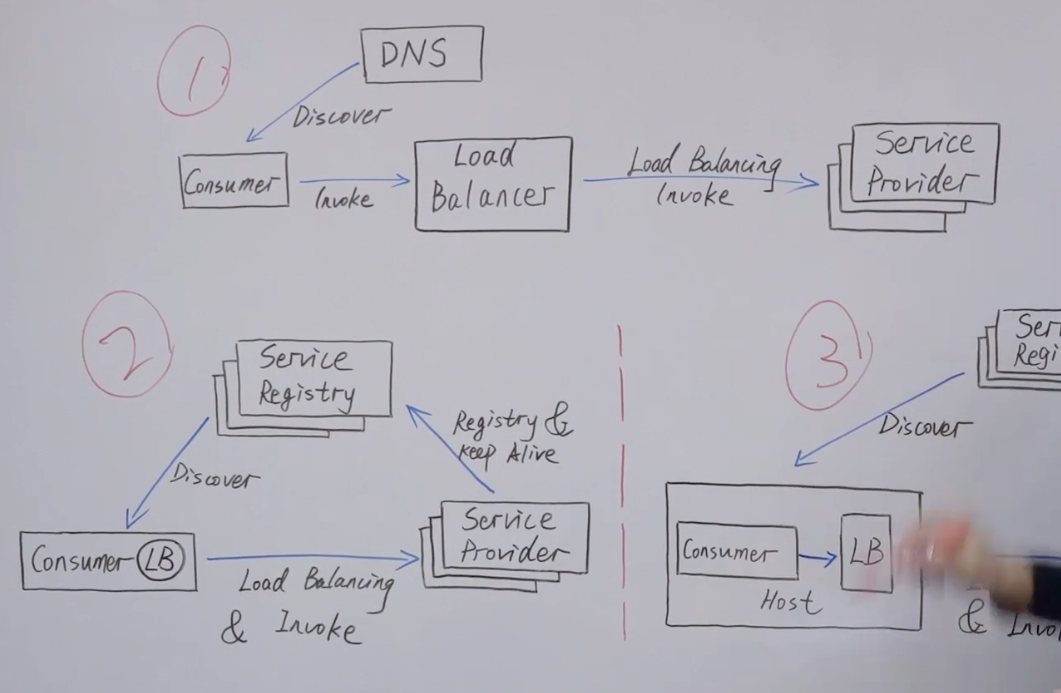 1
DNS
Discover
Consumer
Invoke
Load
Balancer
Load Balancing
Invoke
Service
Provider
2
Service
Registry
Discover
Registry &
Keep Alive
Consumer LB
Load Balancing
& Invoke
Service
Provider
3
Ser
Regi
Discover
Consumer
LB
Host
& Invo